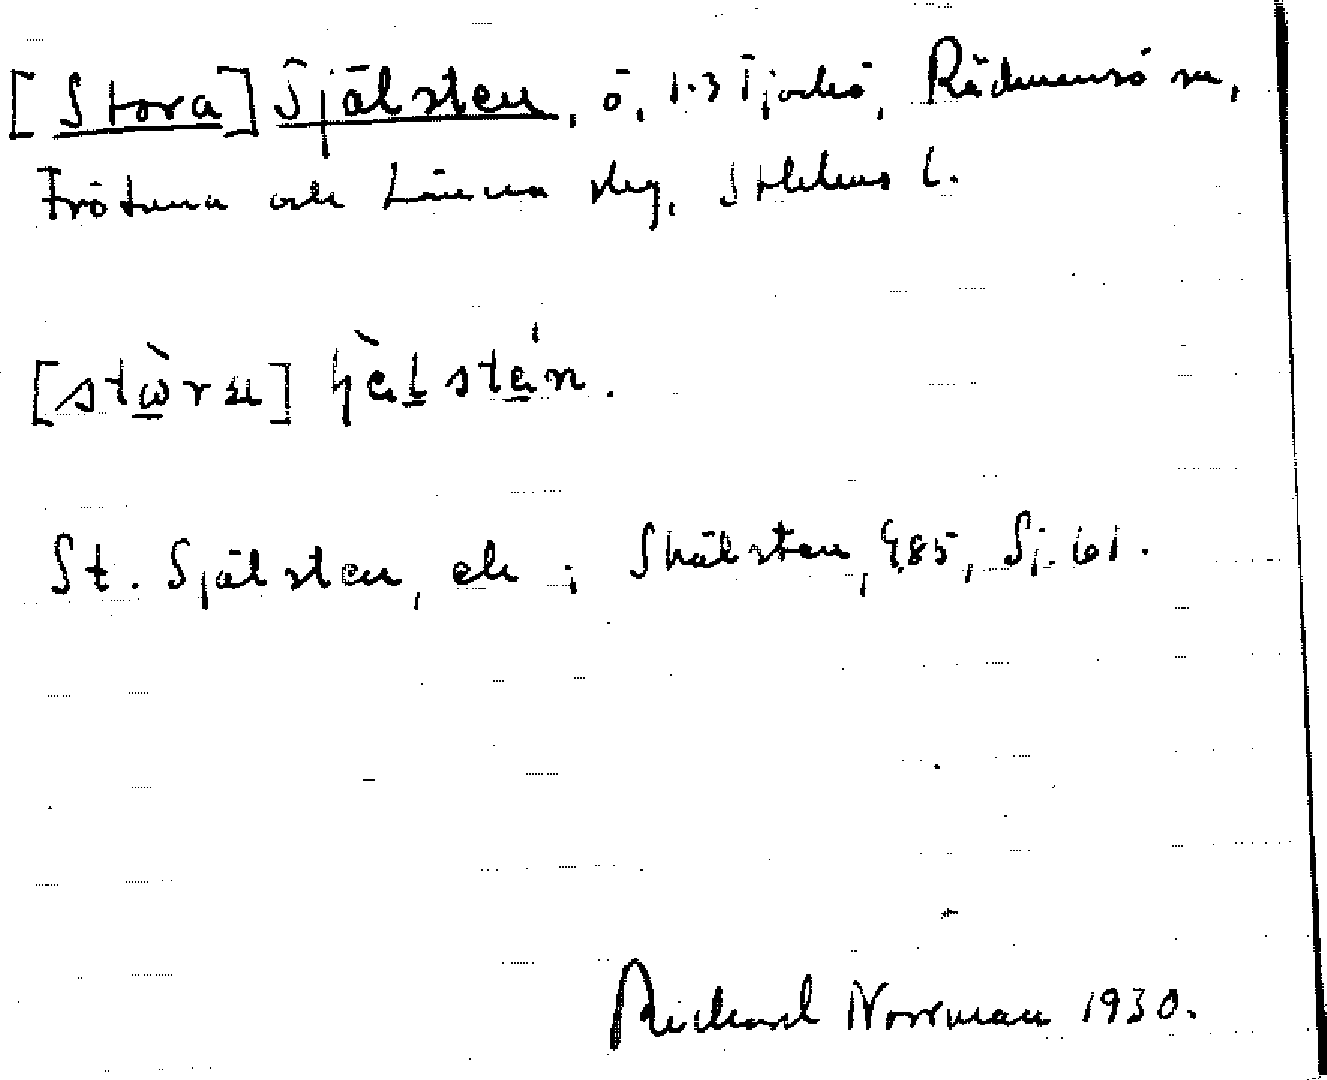 [Stora] Själsten, ö, 1-3 Tjockö, Rådmansö sn,
Frötuna och Länna skg, Sthlms l.
[stɷ̀rɐ] ɧæ̀lsté̱n.
St. Själsten, ek ; Skälsten, G85, Sj. 61.
Richard Norrman 1930.